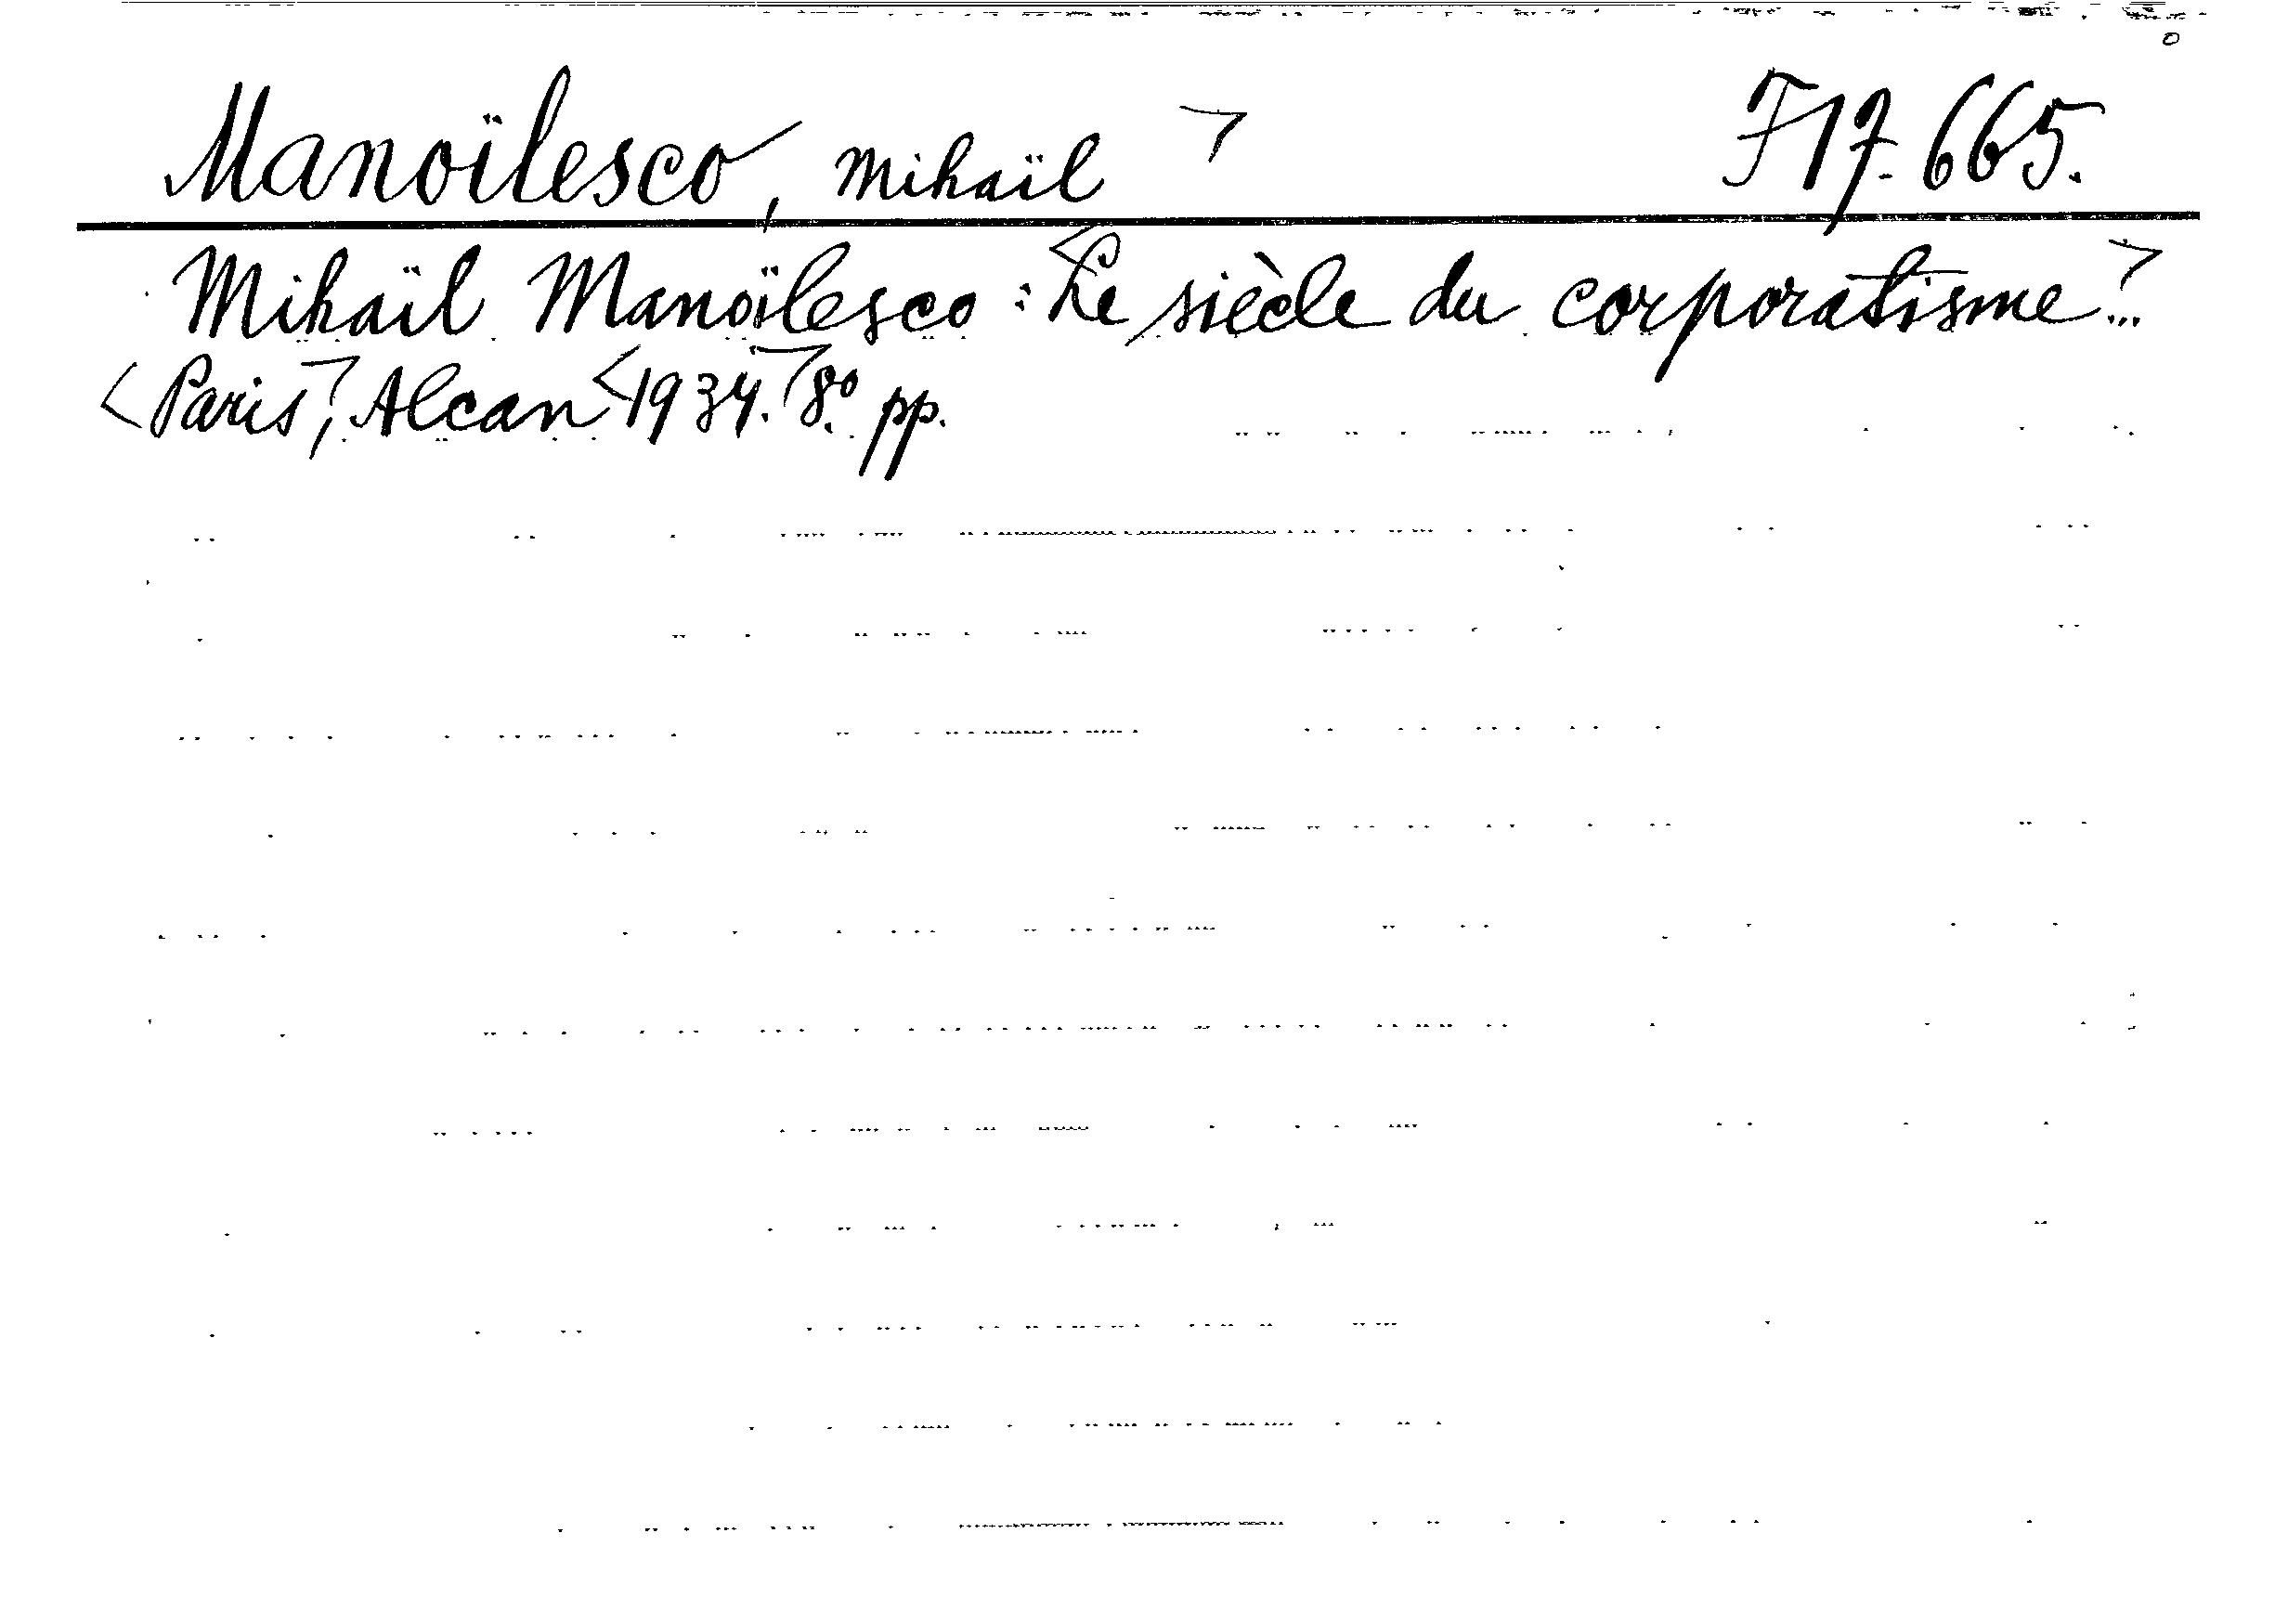 Manoïlesco, Mihaïl F 17.665.
Mihaïl Manoïlesco : Le siècle du corporatisme...
Paris, Alcan 1934. 8.° pp.